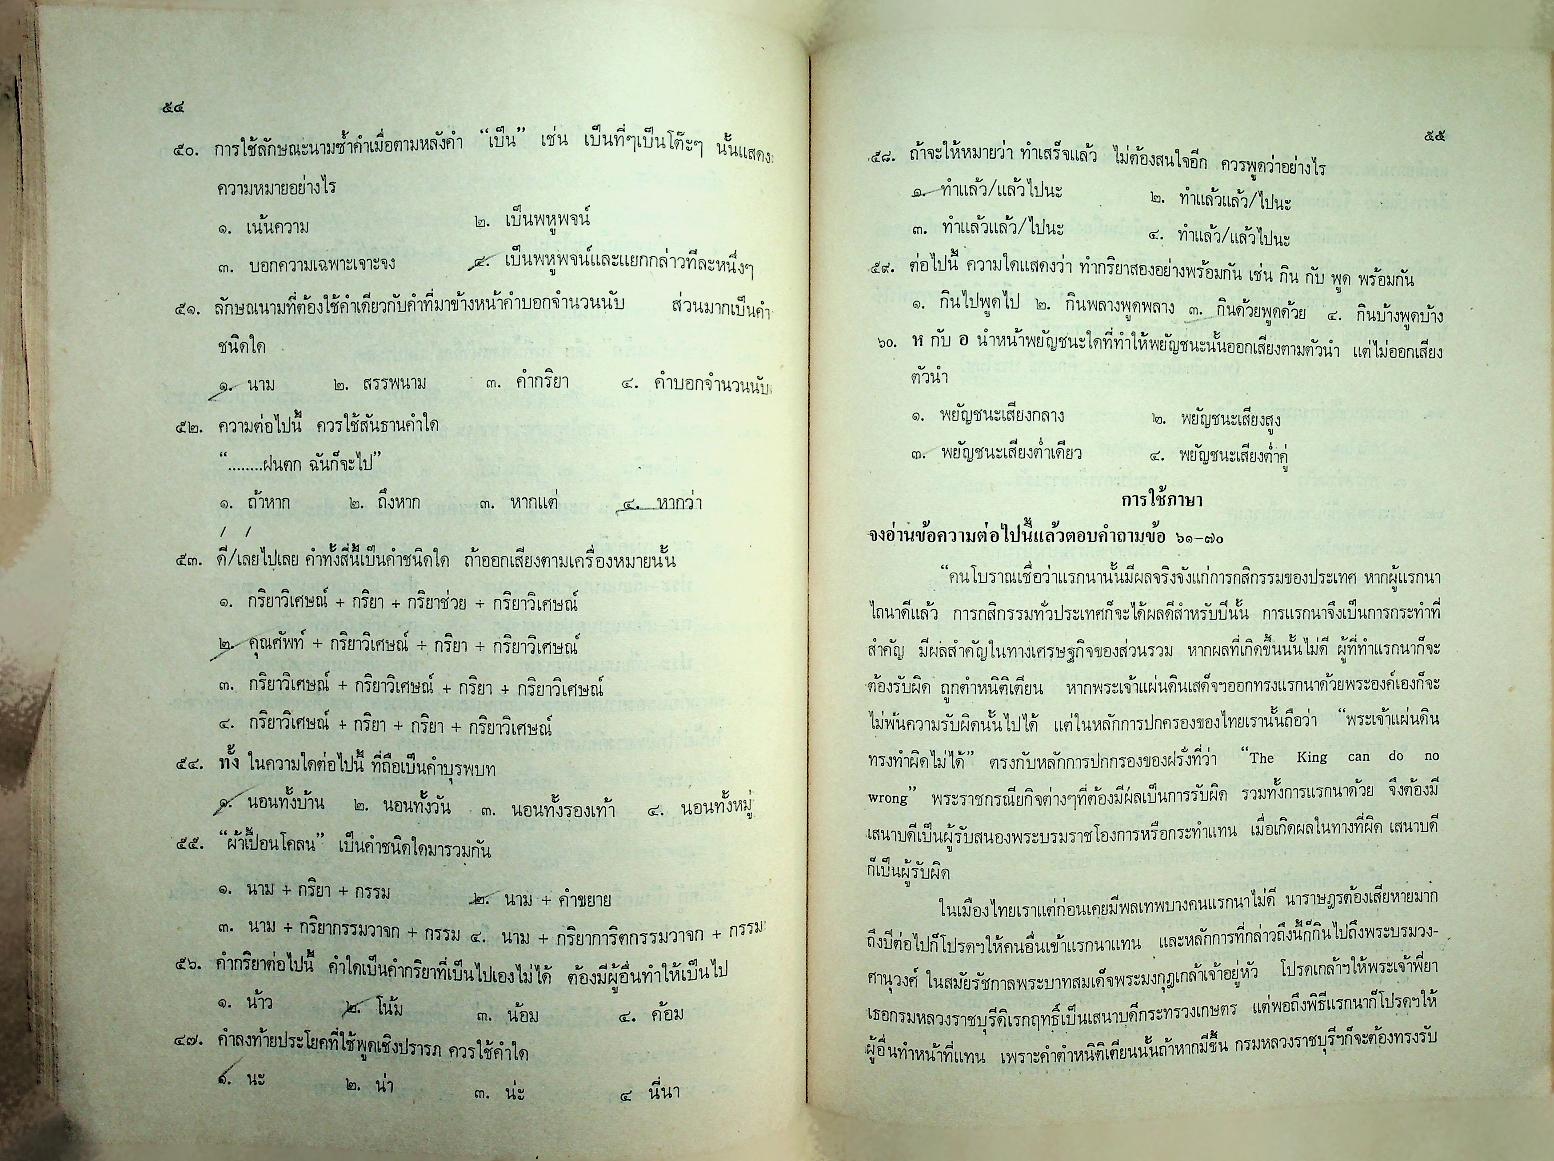 ๕๔
๕๐. การใช้ลักษณะนามซ้ำคำเมื่อตามหลังคำ “เป็น” เช่น เป็นที่ๆเป็นโต๊ะๆ นั้นแสดง
ความหมายอย่างไร
๑. เน้นความ ๒. เป็นพหูพจน์
๓. บอกความเฉพาะเจาะจง ๔. เป็นพหูพจน์และแยกกล่าวทีละหนึ่งๆ
๕๑. ลักษณนามที่ต้องใช้คำเดียวกับคำที่มาข้างหน้าคำบอกจำนวนนับ ส่วนมากเป็นคำ
ชนิดใด
๑. นาม ๒. สรรพนาม ๓. คำกริยา ๔. คำบอกจำนวนนับ
๕๒. ความต่อไปนี้ ควรใช้สันธานคำใด
“........ฝนตก ฉันก็จะไป”
๑. ถ้าหาก ๒. ถึงหาก ๓. หากแต่ ๔. หากว่า
/ /
๕๓. ดี/เลยไปเลย คำทั้งสี่นี้เป็นคำชนิดใด ถ้าออกเสียงตามเครื่องหมายนั้น
๑. กริยาวิเศษณ์ + กริยา + กริยาช่วย + กริยาวิเศษณ์
๒. คุณศัพท์ + กริยาวิเศษณ์ + กริยา + กริยาวิเศษณ์
๓. กริยาวิเศษณ์ + กริยาวิเศษณ์ + กริยา + กริยาวิเศษณ์
๔. กริยาวิเศษณ์ + กริยา + กริยา + กริยาวิเศษณ์
๕๔. ทั้ง ในความใดต่อไปนี้ ที่ถือเป็นคำบุรพบท
๑. นอนทั้งบ้าน ๒. นอนทั้งวัน ๓. นอนทั้งรองเท้า ๔. นอนทั้งหมู่
๕๕. “ผ้าเปื้อนโคลน” เป็นคำชนิดใดมารวมกัน
๑. นาม + กริยา + กรรม ๒. นาม + คำขยาย
๓. นาม + กริยากรรมวาจก + กรรม ๔. นาม + กริยาการิตกรรมวาจก + กรรม
๕๖. คำกริยาต่อไปนี้ คำใดเป็นคำกริยาที่เป็นไปเองไม่ได้ ต้องมีผู้อื่นทำให้เป็นไป
๑. น้าว ๒. โน้ม ๓. น้อม ๔. ค้อม
๔๗. คำลงท้ายประโยคที่ใช้พูดเชิงปรารภ ควรใช้คำใด
๑. นะ ๒. น่า ๓. น่ะ ๔ นี่นา
๕๕
๕๘. ถ้าจะให้หมายว่า ทำเสร็จแล้ว ไม่ต้องสนใจอีก ควรพูดว่าอย่างไร
๑. ทำแล้ว/แล้วไปนะ ๒. ทำแล้วแล้ว/ไปนะ
๓. ทำแล้วแล้ว/ไปนะ ๔. ทำแล้ว/แล้วไปนะ
๕๙. ต่อไปนี้ ความใดแสดงว่า ทำกริยาสองอย่างพร้อมกัน เช่น กิน กับ พูด พร้อมกัน
๑. กินไปพูดไป ๒. กินพลางพูดพลาง ๓. กินด้วยพูดด้วย ๔. กินบ้างพูดบ้าง
๖๐. ห กับ อ นำหน้าพยัญชนะใดที่ทำให้พยัญชนะนั้นออกเสียงตามตัวนำ แต่ไม่ออกเสียง
ตัวนำ
๑. พยัญชนะเสียงกลาง ๒. พยัญชนะเสียงสูง
๓. พยัญชนะเสียงต่ำเดียว ๔. พยัญชนะเสียงต่ำคู่
การใช้ภาษา
จงอ่านข้อความต่อไปนี้แล้วตอบคำถามข้อ ๖๑-๗๐
“คนโบราณเชื่อว่าแรกนานั้นมีผลจริงจังแก่การกสิกรรมของประเทศ หากผู้แรกนา
ไถนาดีแล้ว การกสิกรรมทั่วประเทศก็จะได้ผลดีสำหรับปีนั้น การแรกนาจึงเป็นการกระทำที่
สำคัญ มีผลสำคัญในทางเศรษฐกิจของส่วนรวม หากผลที่เกิดขึ้นนั้นไม่ดี ผู้ที่ทำแรกนาก็จะ
ต้องรับผิด ถูกตำหนิติเตียน หากพระเจ้าแผ่นดินเสด็จฯออกทรงแรกนาด้วยพระองค์เองก็จะ
ไม่พ้นความรับผิดนั้นไปได้ แต่ในหลักการปกครองของไทยเรานั้นถือว่า “พระเจ้าแผ่นดิน
ทรงทำผิดไม่ได้” ตรงกับหลักการปกครองของฝรั่งที่ว่า “The King can do no
wrong” พระราชกรณียกิจต่างๆที่ต้องมีผลเป็นการรับผิด รวมทั้งการแรกนาด้วย จึงต้องมี
เสนาบดีเป็นผู้รับสนองพระบรมราชโองการหรือกระทำแทน เมื่อเกิดผลในทางที่ผิด เสนาบดี
ก็เป็นผู้รับผิด
ในเมืองไทยเราแต่ก่อนเคยมีพลเทพบางคนแรกนาไม่ดี นาราษฎรต้องเสียหายมาก
ถึงปีต่อไปก็โปรดฯให้คนอื่นเข้าแรกนาแทน และหลักการที่กล่าวถึงนี้ก็กินไปถึงพระบรมวง-
ศานุวงศ์ ในสมัยรัชกาลพระบาทสมเด็จพระมงกุฎเกล้าเจ้าอยู่หัว โปรดเกล้าฯให้พระเจ้าพี่ยา
เธอกรมหลวงราชบุรีดิเรกฤทธิ์เป็นเสนาบดีกระทรวงเกษตร แต่พอถึงพิธีแรกนาก็โปรดฯให้
ผู้อื่นทำหน้าที่แทน เพราะคำตำหนิติเตียนนั้นถ้าหากมีขึ้น กรมหลวงราชบุรีฯก็จะต้องทรงรับ